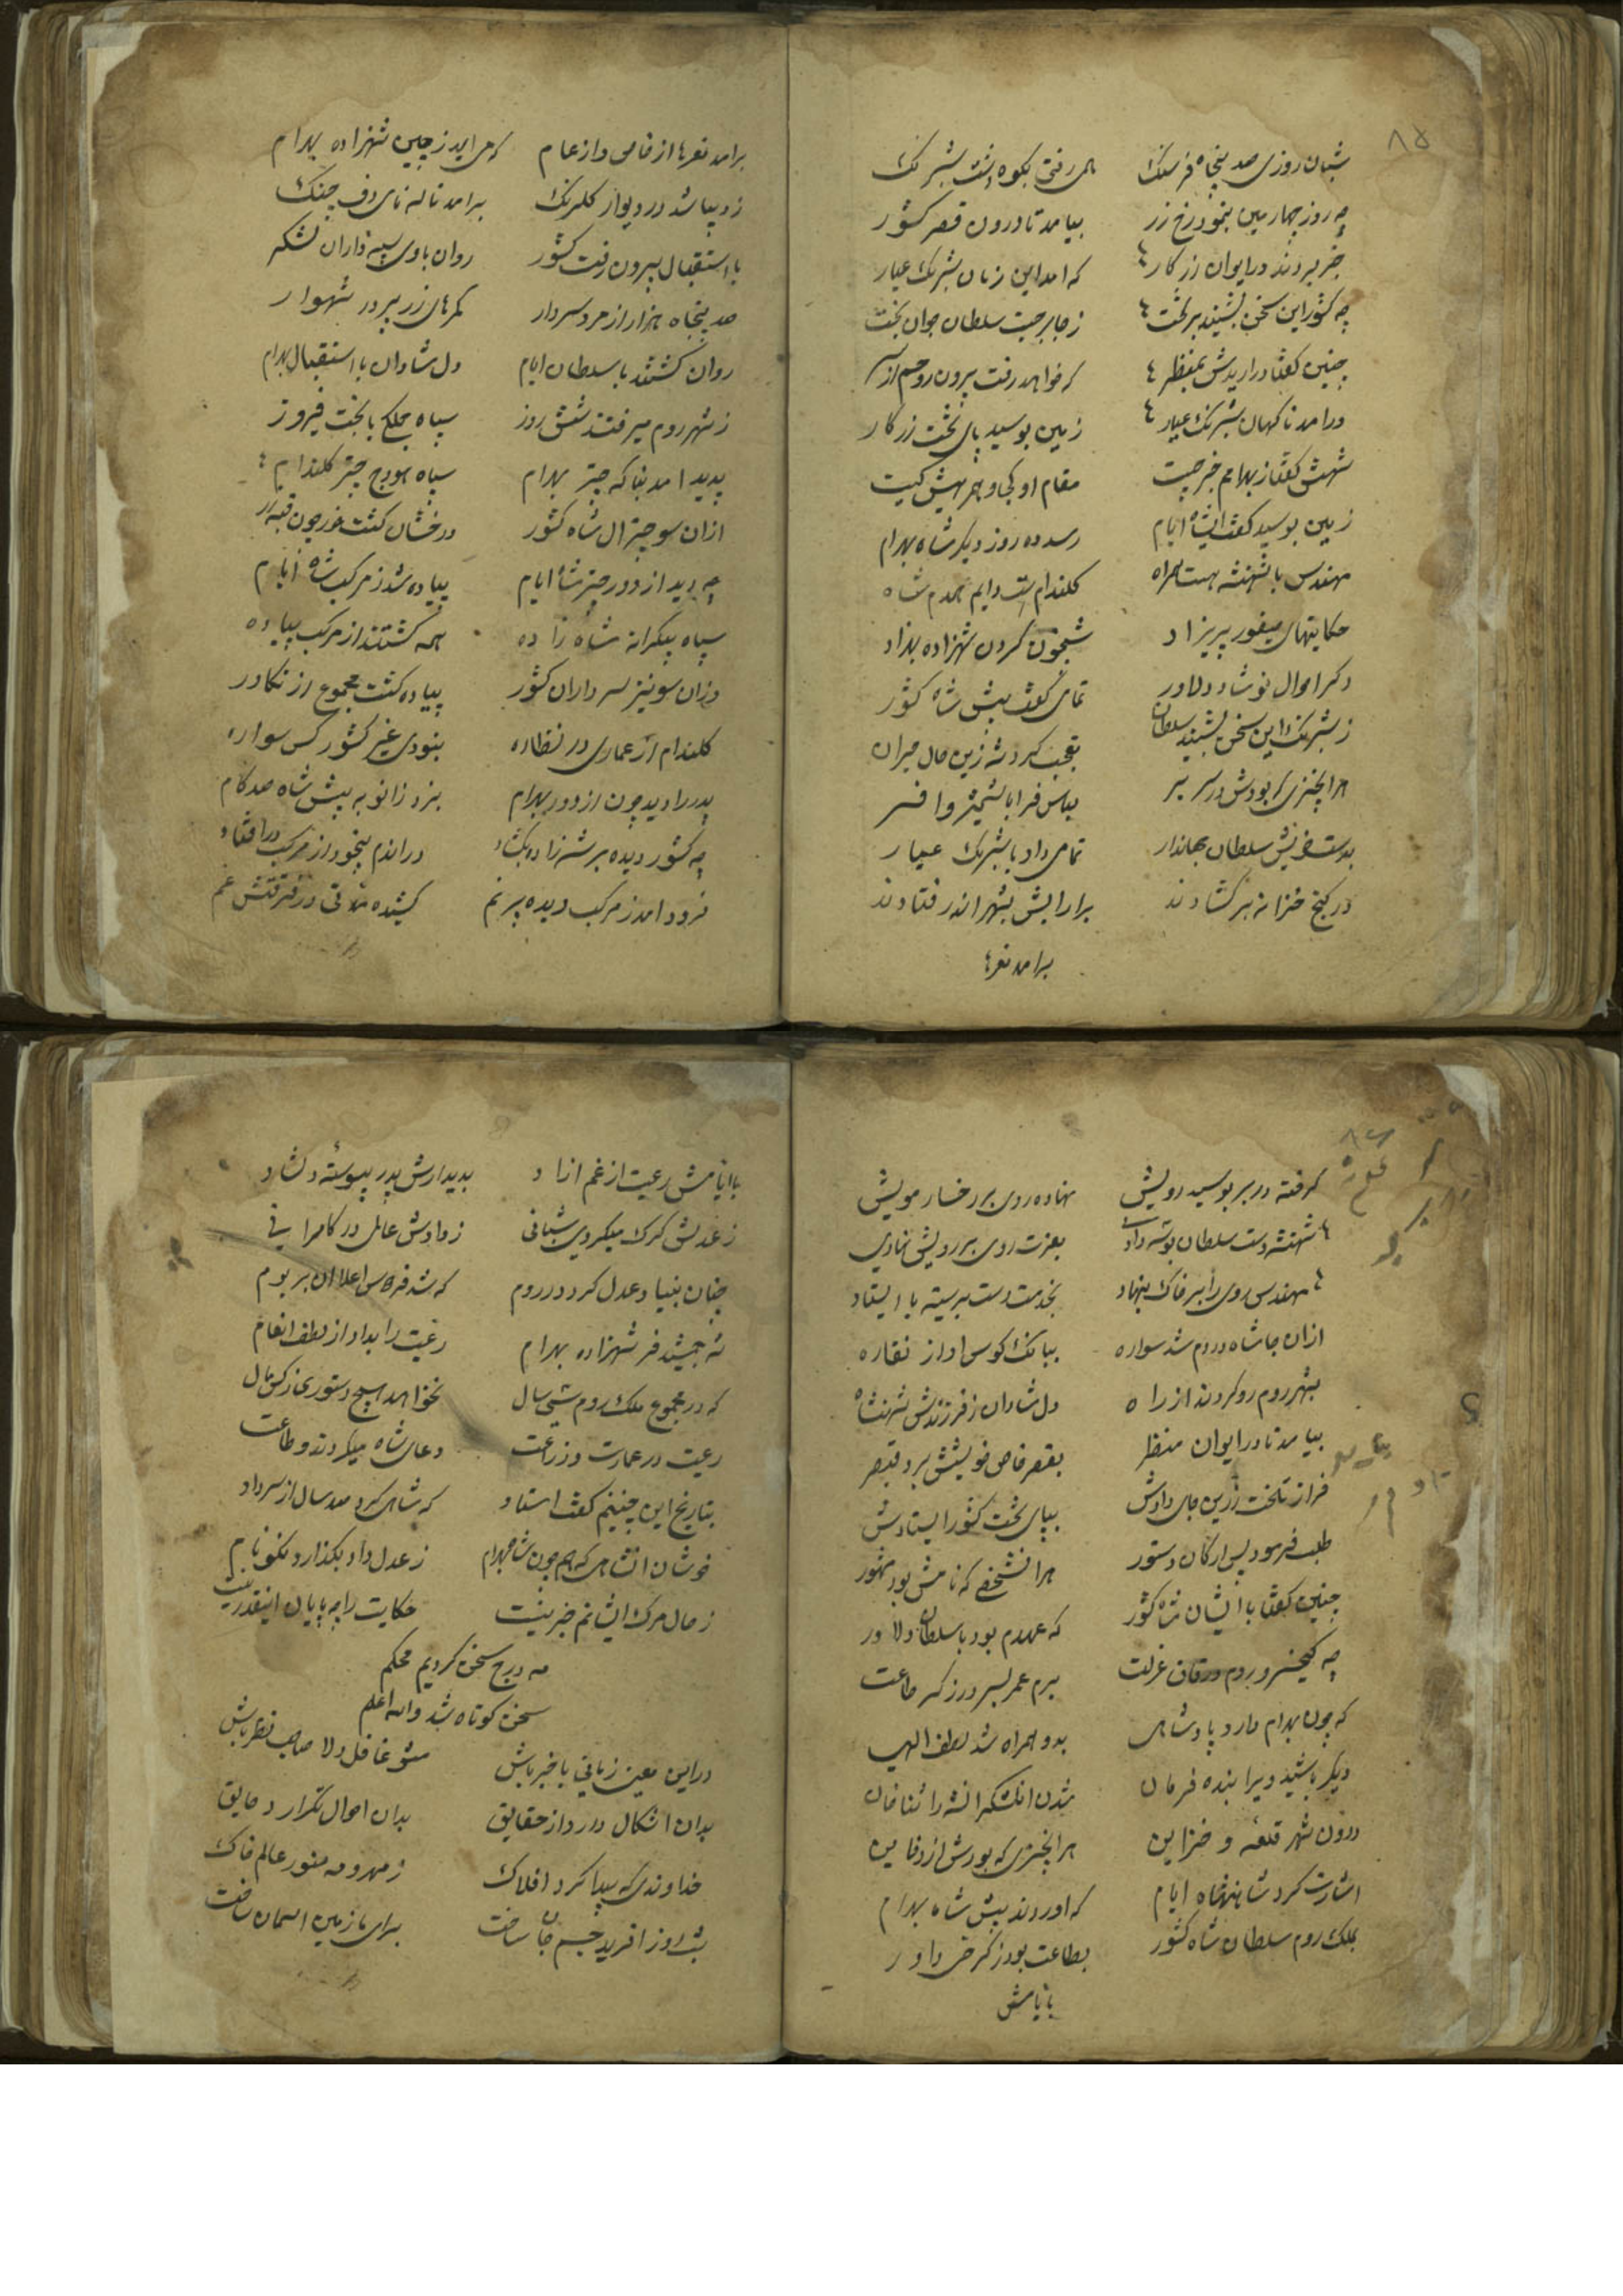 ۸۵
شبان روزی صد پنجاه فرسنک همی رفتی بکوه دشت شبرنک
چه روز چهارمین بنمود رخ زر بیامد تا درون قصر کشور
خبر بردند در ایوان زرکار که امد این زمان شبرنک عیار
چه کشور این سخن بشنید بر تخت ز جا برجست سلطان جوان بخت
چنین کفتا در اریدش بمنظر که خواهد رفت بیرون روحم از سر
در امد ناکهان شبرنک عیار زمین بوسید پای تخت زرکار
شهش کفتا ز بهرامم خبر چیست مقام او کجا و همرهش کیست
زمین بوسید کفت ایشاه ایام رسد ده روز دیکر شاه بهرام
مهندس با شهنشه هست همراه کلندام است دایم همدم شاه
حکایتهای صیفور پریزاد شبیخون کردن شهزاده بهزاد
دکر احوال نوشاد دلاور تمامی کفت پیش شاه کشور
ز شبرنک این سخن بشنید سلطان تعجب کرد شه زین حال حیران
هرانچیزی که بودش در سر بر لباس فر ابا شمشیر و افسر
بدست خویش سلطان جهاندار تمامی داد با شبرنک عیار
در کنج خزانه برکشادند برارایش بشهر اندر فتادند
برامد نعرها
برامد نعرها از خاص و از عام که می اید ز چین شهزاده بهرام
ز دیبا شد در دیوار کلرنک برامد ناله نای دف چنک
با استقبال بیرون رفت کشور روان با وی سپه داران لشکر
صد پنجاه هزار از مرد سردار کمرهای زر پر در شهوار
روان کشتند با سلطان ایام دل شادان با استقبال بهرام
ز شهر روم میرفتند شش روز سپاه جملکی با بخت فیروز
پدید امد بناکه چتر بهرام سپاه هودج چتر کلندام
ازان سو چتر ال شاه کشور درخشان کشت خور چون قبه زر
چه دید از دور چتر شاه ایام پیاده شد ز مرکب شاه ایام
سپاه بیکرانه شاه زاده همه کشتند از مرکب پیاده
وزان سو نیز سرداران کشور پیاده کشت مجموع از تکاور
کلندام از عماری در نظاره نبودی غیر کشور کس سواره
پدر را دید چون از دور بهرام بزد زانو به پیش شاه صد کام
چه کشور دیده بر شه زاده بکشاد دراندم بیخود از مرکب در افتاد
فرود امد ز مرکب دیده پر نم کشیده مدتی در فرقتش غم
۸۶
کرفته در بر بوسید رویش نهاده روی بر رخسار مویش
شهنشه دست سلطان بوسه دادی بعزت روی بر رویش نهادی
مهندس روی را بر خاک بنهاد بخدمت دست بر سینه با ایستاد
ازان جا شاه در دم شد سواره ببانک کوس اواز نقاره
بشهر روم رو کردند از راه دل شادان ز فرزندش شهنشاه
بیامد تا در ایوان منظر بقصر خاص خویشش برد قیصر
فراز تخت زرین جای دادش بپای تخت کشور ایستادش
طلب فرمود پس ارکان دستور هرانشخصی که نامش بود مشهور
چنین کفتا با ایشان شاه کشور که عهدم بود با سلطان دلاور
چه کیخسرو بردم در قاف عزلت برم عمر بسر در ذکر طاعت
که چون بهرام دارد پادشاهی بدو همراه شد لطف الهی
دیکر باشید ویرا بنده فرمان
درون شهر قلعه و خزاین هرانچیزی که بودش از دفاین
اشارت کرد شاهنشاه ایام که اوردند پیش شاه بهرام
بملک روم سلطان شاه کشور بطاعت بود ذکر حی داور
باایامش
باایامش رعیت از غم ازاد بدیدارش پدر پیوسته دلشاد
ز عدلش کرک میکردی شبانی ز دادش عالمی در کامرانی
چنان بنیاد عدل کرد در روم که شد فرخاص اعلاان بر بوم
شه جمشید فر شهزاده بهرام رعیت را بداد از لطف انعام
که در مجموع ملک روم شش سال نخواهد هیچ دستوری ز کس مال
رعیت در عمارت وزراعت دعای شاه میکردند و طاعت
بتاریخ این چنینم کفت استاد که شاهی کرد صد سال از سر داد
خوشان انشاهی که هم چون شاه بهرام ز عدل داد بکذارد نکونام
ز حال مرک ایشانم خبر نیست حکایت را چه پایان اینقدر نیست
مه درج سخن کردیم محکم
سخن کوتاه شد والله اعلم
در این معنی زمانی با خبر باش مشو غافل دلا صاحب نظر باش
بدان اشکال دارد از حقایق بدان احوال تکرار دقایق
خداوندی که پیدا کرد افلاک ز مهر و مه منور عالم خاک
شب روز افرید جسم جان ساخت برای ما زمین اسمان ساخت